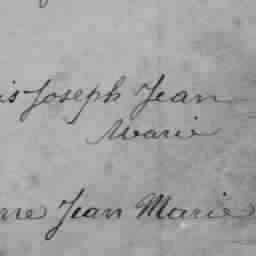 is Joseph Jean
Marie
ne Jean Marie